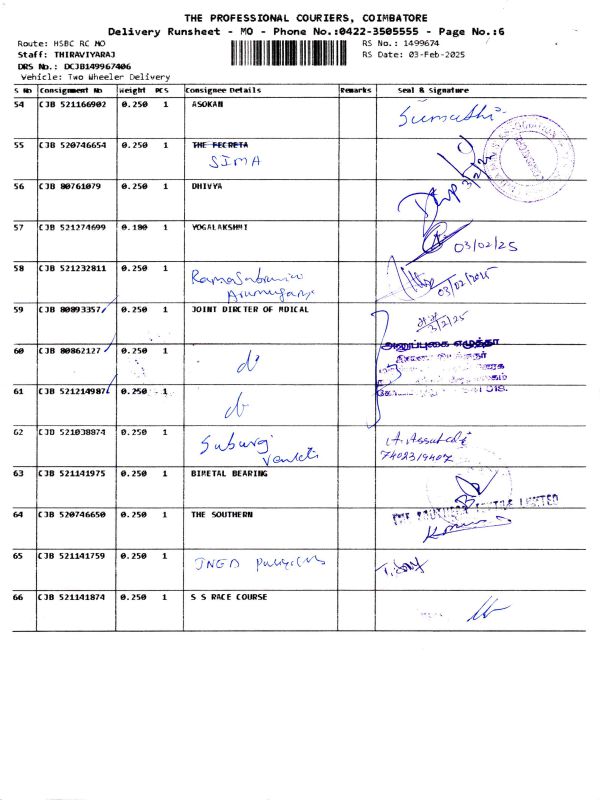 THE PROFESSIONAL COURIERS, COIMBATORE
Delivery Runsheet - MO - Phone No.:0422-3505555 - Page No.:6
Route: HSBC RC MO
RS No.: 1499674
Staff: THIRAVIYARAJ
RS Date: 03-Feb-2025
DRS No.: DCJB149967406
Vehicle: Two Wheeler Delivery
S No Consignment No Weight PCS Consignee Details Remarks Seal & Signature
54 CJB 521166902 0.250 1 ASOKAN Sumathi
55 CJB 520746654 0.250 1 THE FECRETA
SIMA
3/2/25
56 CJB 80761079 0.250 1 DHIVYA
57 CJB 521274699 0.180 1 YOGALAKSHMI 03/02/25
58 CJB 521232811 0.250 1
03/02/2025
59 CJB 80893357 0.250 1 JOINT DIRCTER OF MDICAL
3/2/25
அனுப்புகை எழுத்தர்
60 CJB 80862127 0.250 1 d'
61 CJB 521214987 0.250 1
62 CJB 521038874 0.250 1 Suburaj
Venkati
7402319407
63 CJB 521141975 0.250 1 BIMETAL BEARING
64 CJB 520746650 0.250 1 THE SOUTHERN THE SOUTHERN LIMITED
65 CJB 521141759 0.250 1
66 CJB 521141874 0.250 1 S S RACE COURSE